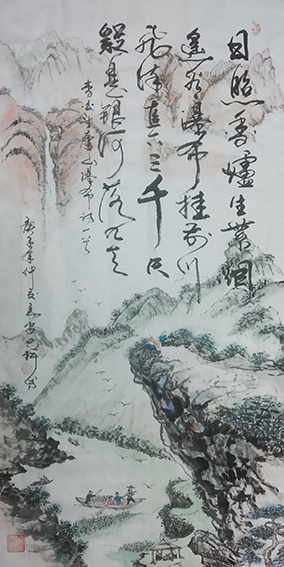 日照香爐生紫烟
遥看瀑布挂前川
飛流直下三千尺
疑是銀河落九天
李白望廬山瀑布诗一首
庚子年仲夏